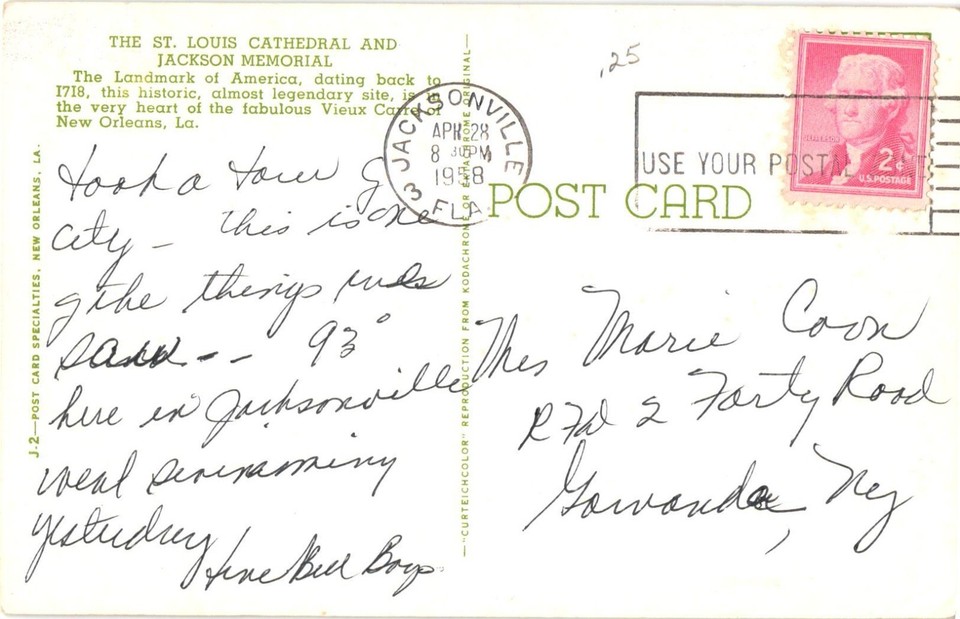 THE ST. LOUIS CATHEDRAL AND
JACKSON MEMORIAL
The Landmark of America, dating back to
1718, this historic, almost legendary site, is
the very heart of the fabulous Vieux Carre of
New Orleans, La.
took a tour of
city - This is one
of the things
-- 93°
here in Jacksonville
went swimming
yesterday
Bill
J-2—POST CARD SPECIALTIES, NEW ORLEANS, LA.
—"CURTEICHCOLOR" REPRODUCTION FROM KODACHROME OR EKTACHROME ORIGINAL—
.25
JACKSONVILLE
APR 28
8 30 PM
1958
3 FLA.
USE YOUR POSTAL
JEFFERSON
2¢
U.S. POSTAGE
POST CARD
Mrs Marie Coon
R F d 2 Forty Road
Gowanda, Ny